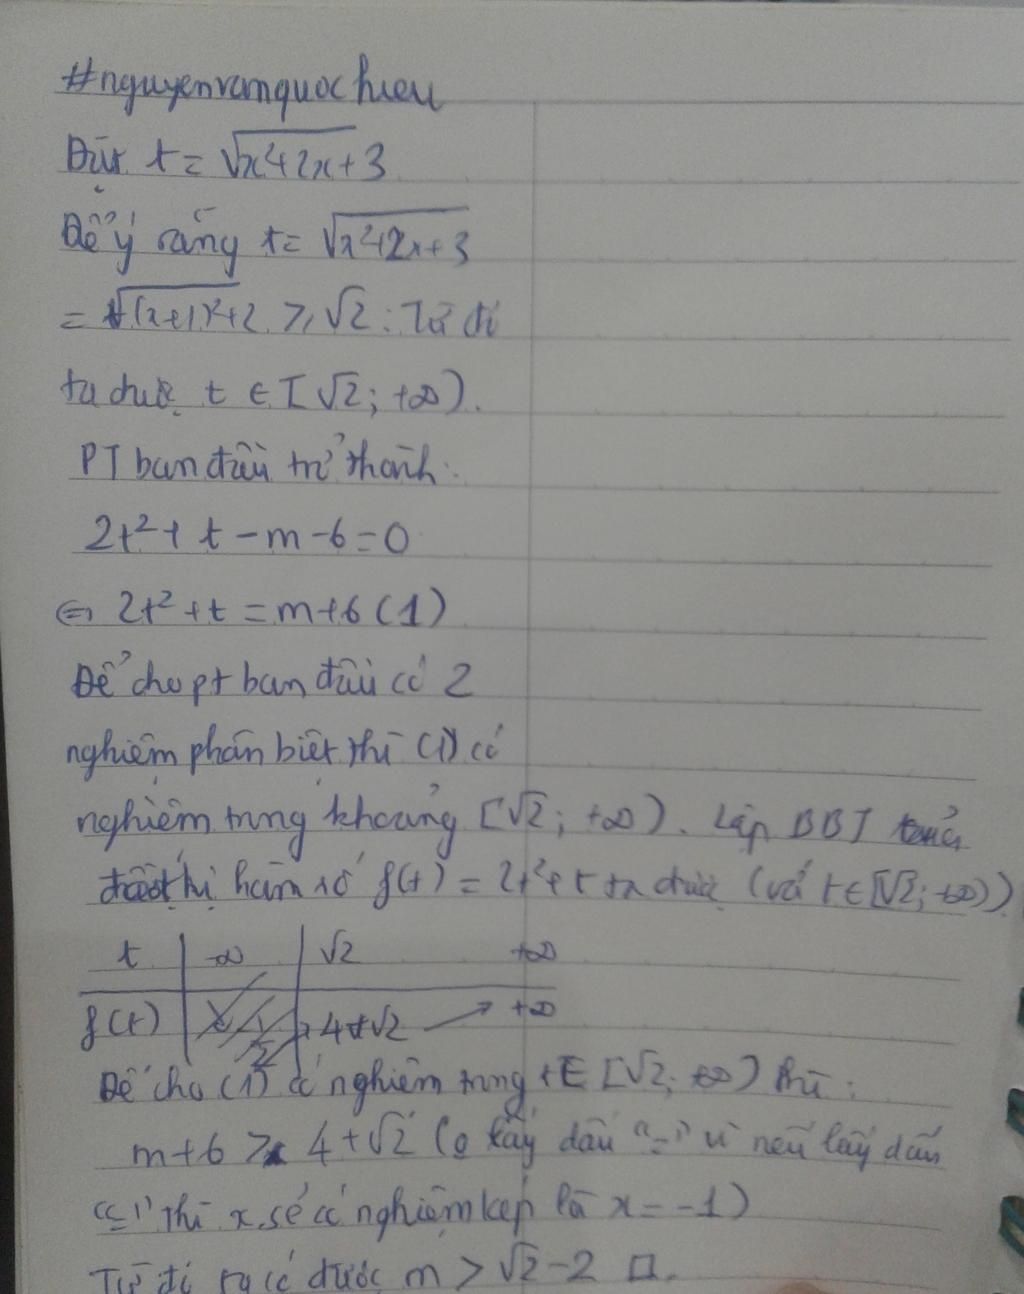 #nguyenvanquochieu
Đặt t = √x²+2x+3
Để ý rằng t = √x²+2x+3
= √(x+1)²+2 ≥ √2 : Từ đó
ta được t ∈ [√2; +∞).
PT ban đầu trở thành:
2t² + t - m - 6 = 0
⇔ 2t² + t = m+6 (1)
Để cho pt ban đầu có 2
nghiệm phân biệt thì (1) có
nghiệm trong khoảng [√2; +∞). Lập BBT
đồ thị hàm số f(t) = 2t²+t ta được (với t∈[√2; +∞))
t -∞ √2 +∞
f(t) 4+√2 +∞
Để cho (1) có nghiệm trong t∈[√2; +∞) thì:
m+6 > 4+√2 (0 lấy dấu "=" vì nếu lấy dấu
"=" thì x sẽ có nghiệm kép là x = -1)
Từ đó ta có được m > √2-2 □.